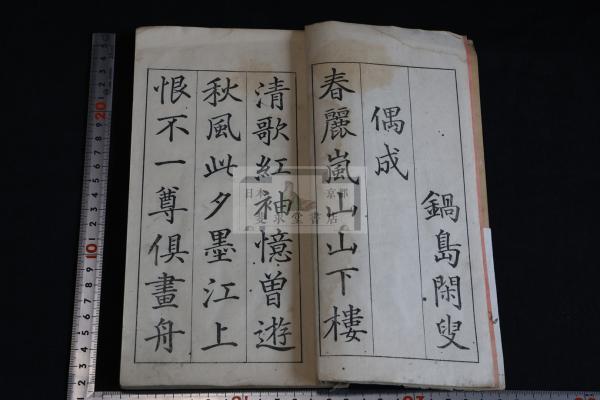 鍋島閑叟
偶成
春麗嵐山山下樓
清歌紅袖憶曽遊
秋風此夕墨江上
恨不一尊俱畫舟
日本 京都
書店
10
20